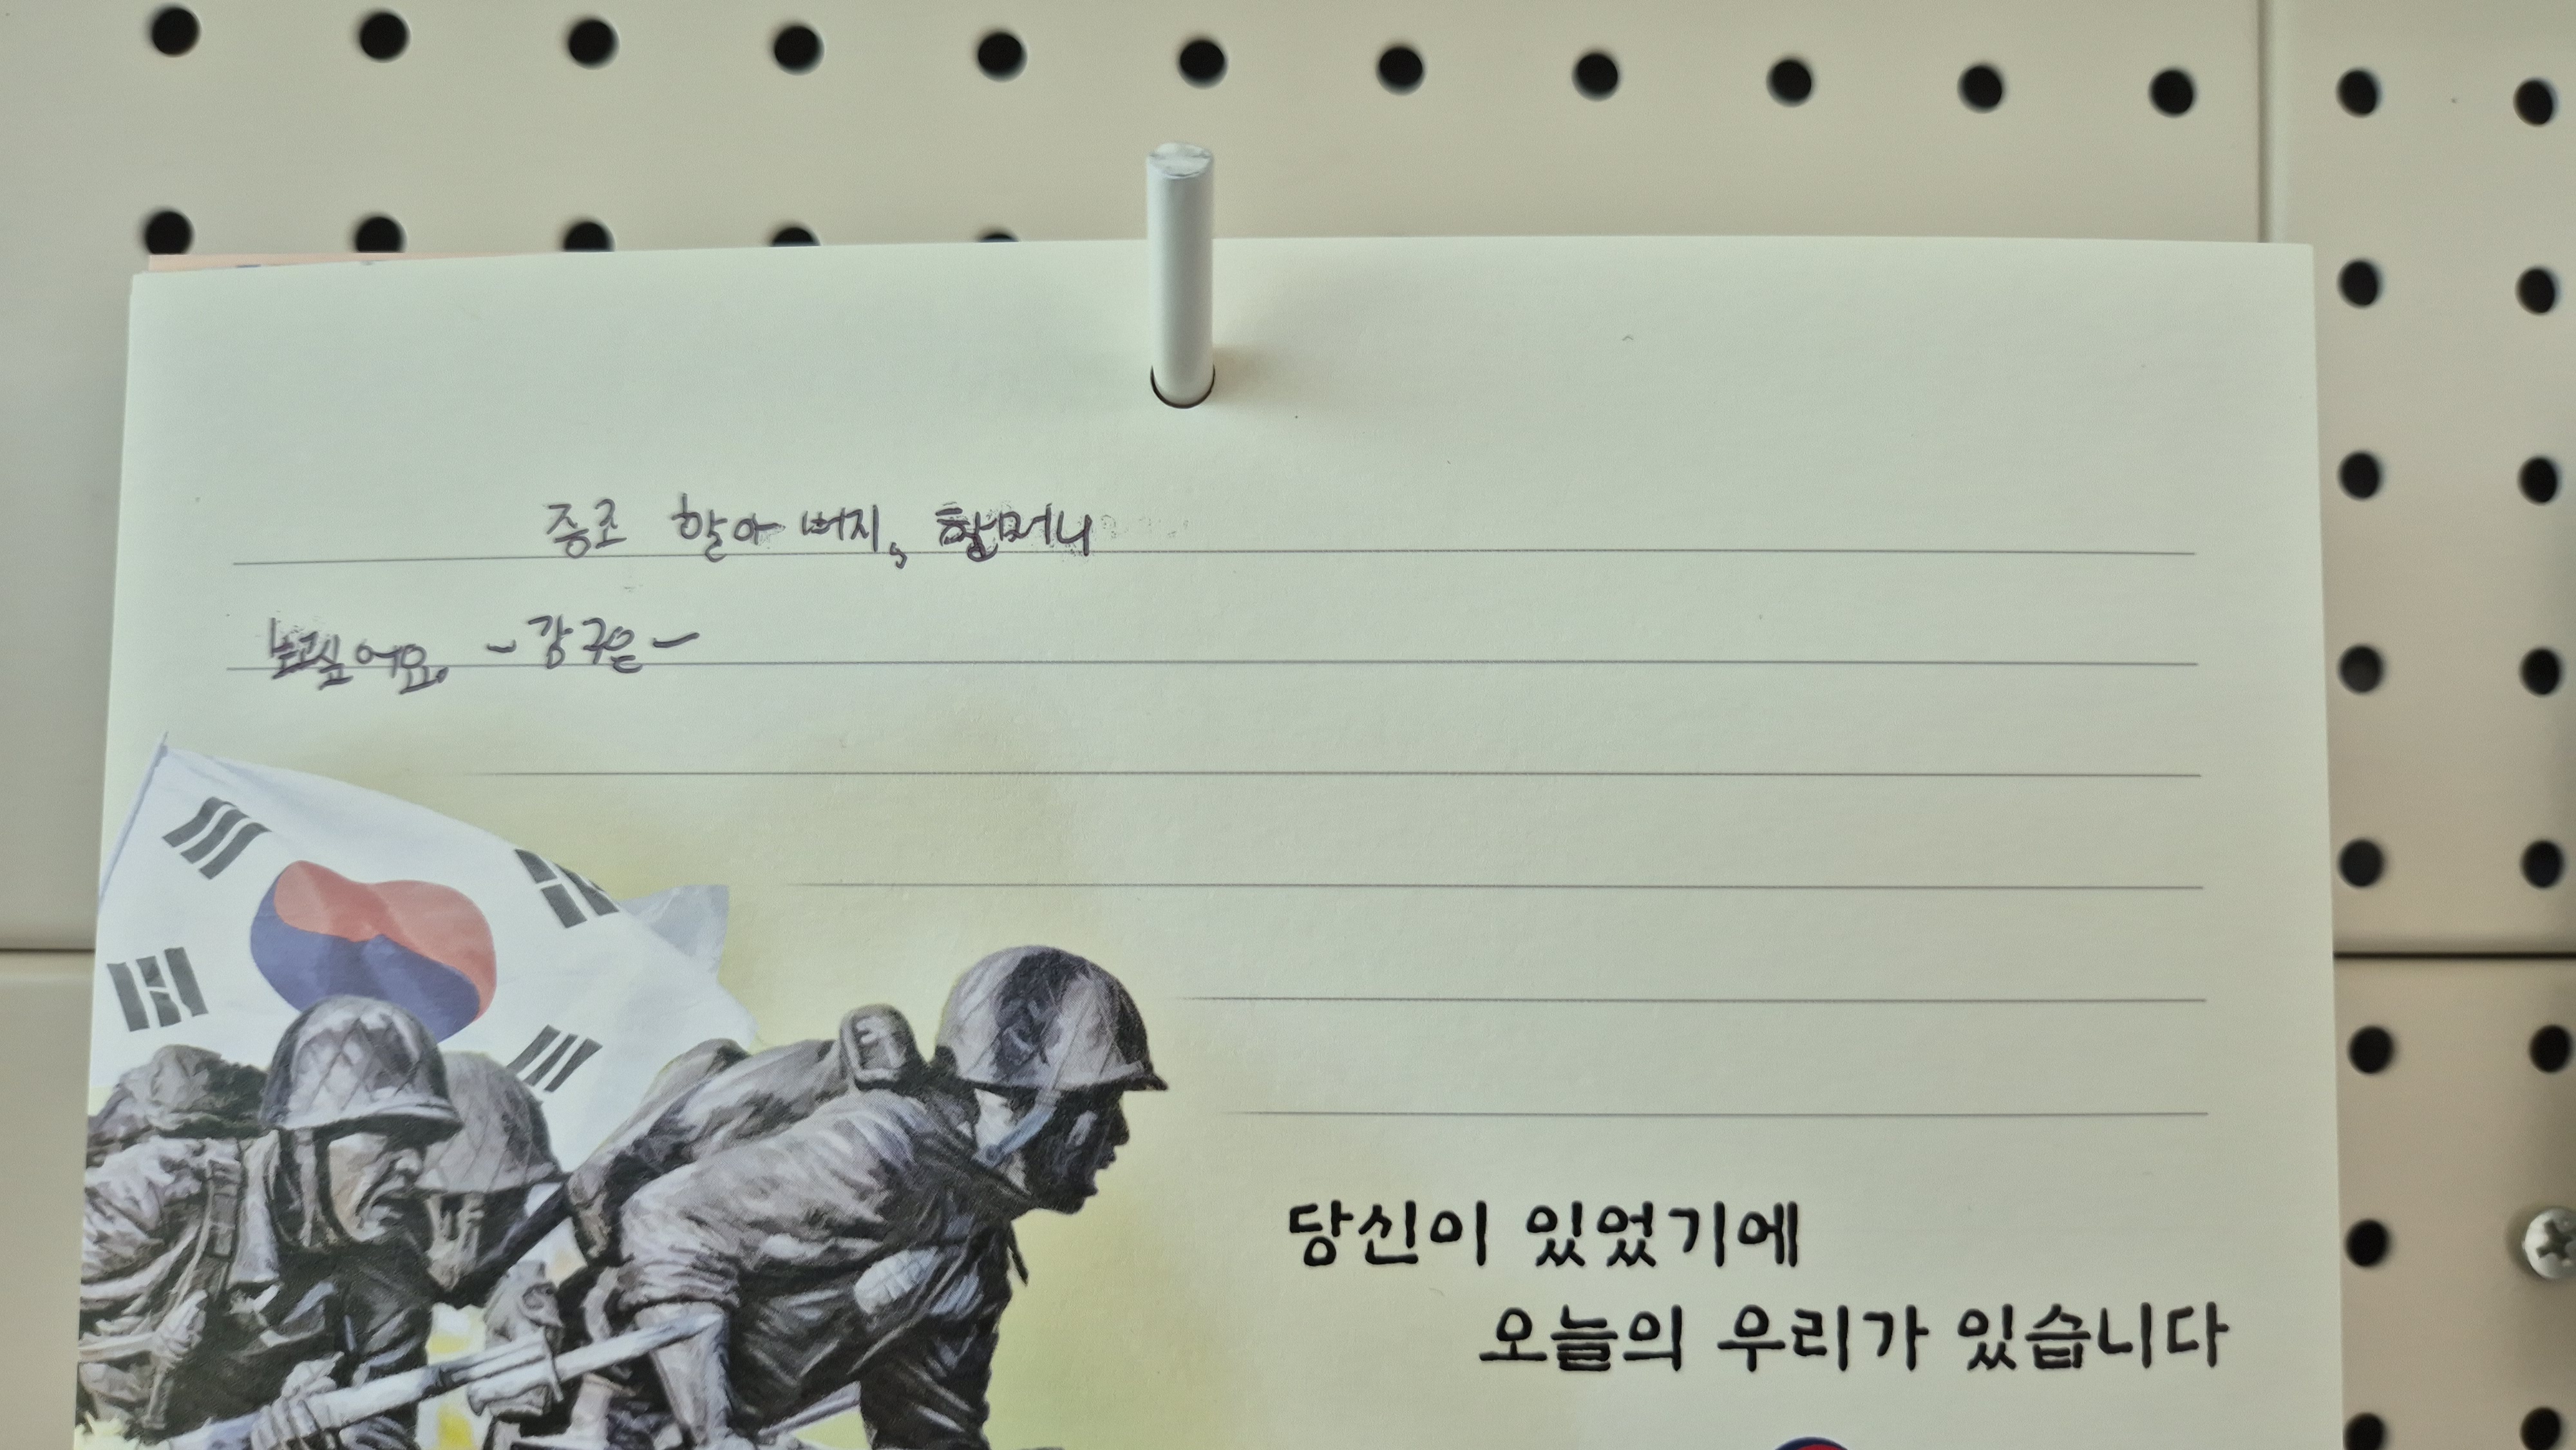 증조 할아버지, 할머니
보고싶어요. - 강구은 -
당신이 있었기에
오늘의 우리가 있습니다